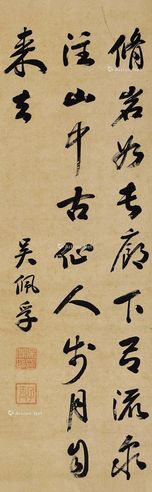 脩岩如長廊下有流泉
注山中古仙人步月自
来去
吴佩孚